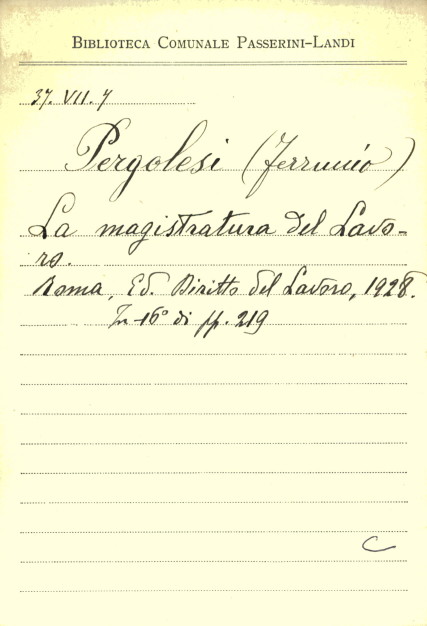 BIBLIOTECA COMUNALE PASSERINI-LANDI
37. VII. 4
Pergolesi (Ferruccio)
La magistratura del Lavo-
ro.
Roma, Ed. Diritto del Lavoro, 1928.
In-16° di pp. 219
C